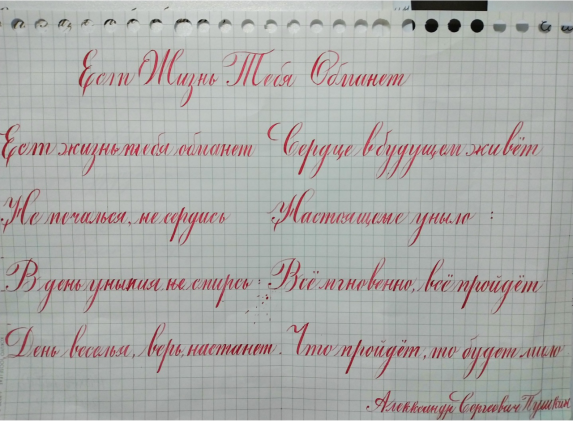 Если Жизнь Тебя Обманет
Если жизнь тебя обманет
Не печалься, не сердись
В день уныния, не смирсь :
День веселья, верь, настанет.
Сердце в будущем живёт
Настоящеме уныло :
Всё мгновенно, всё пройдёт
Что пройдёт, то будет мило
Александр Сергеевич Пушкин